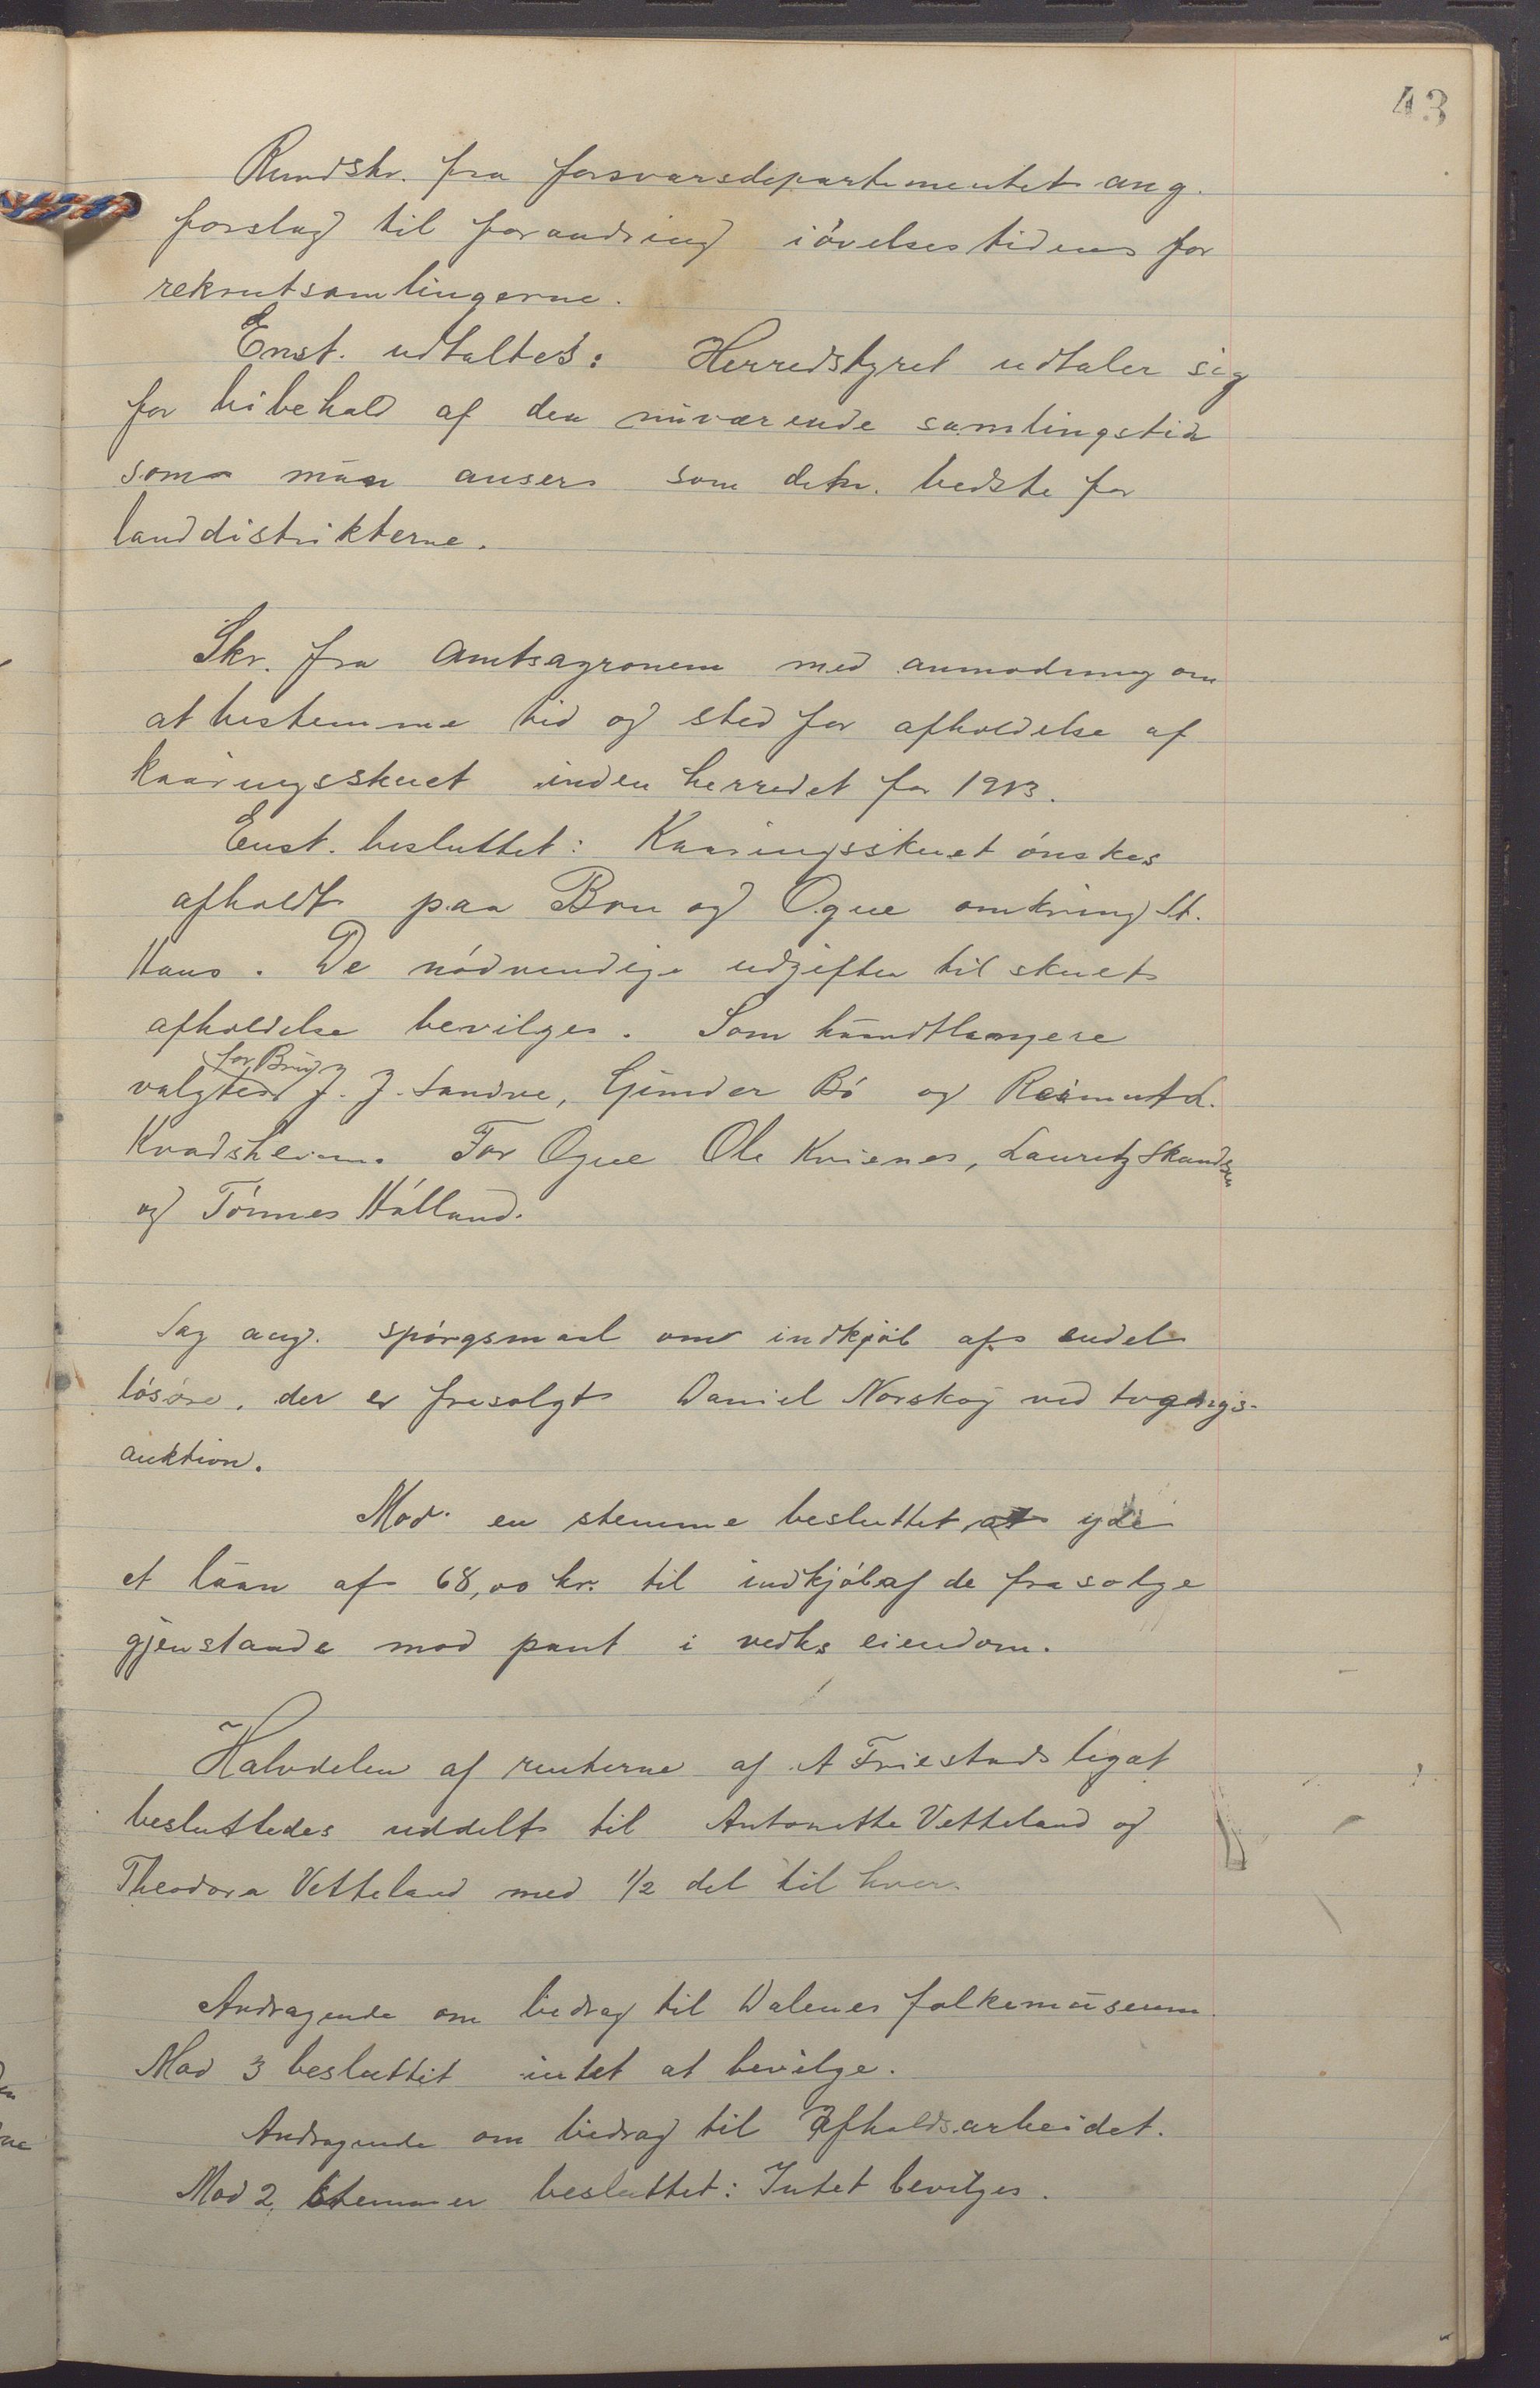 43
Rundskr. fra forsvarsdepartementet ang.
forslag til forandring i övelsestidens for
rekrutsamlingerne.
Enst. udtaltes: Herredstyret udtaler sig
for bibehold af den nuværende samlingstid
som man anser som den bedste for
landdistrikterne.
Skr. fra amtsagronom med anmodning om
at bestemme tid og sted for afholdelse af
kaaringsskuet inden herredet for 1913.
Enst. besluttet: Kaaringsskuet ónskes
afholdt paa Bru og Ogne omkring St.
Hans. De nódvendige udgifter til skuets
afholdelse bevilges. Som haandtlangere
for Bru
valgtes J. J. Sandve, Gunder Bó og Reimert L.
Kvadsheim. For Ogne Ole Kvienes, Lauritz Skandsen
og Tónnes Hálland.
Sag ang. spórgsmaal om indkjób af endel
lósóre, der er frasolgt Daniel Norskog ved tvangs-
auktion.
Mod en stemme besluttet at yde
et laan af 68,00 kr. til indkjób af de frasolge
gjenstande mod pant i vedks eiendom.
Halvdelen af renterne af A Friestads legat
besluttedes uddelt til Antonette Vetteland og
Theodora Vetteland med 1/2 del til hver.
Andragende om bidrag til Dalenes folkemuseum.
Mod 3 besluttet intet at bevilge.
Andragende om bidrag til Afholdsarbeidet.
Mod 2 Stemmer besluttet: Intet bevilges.